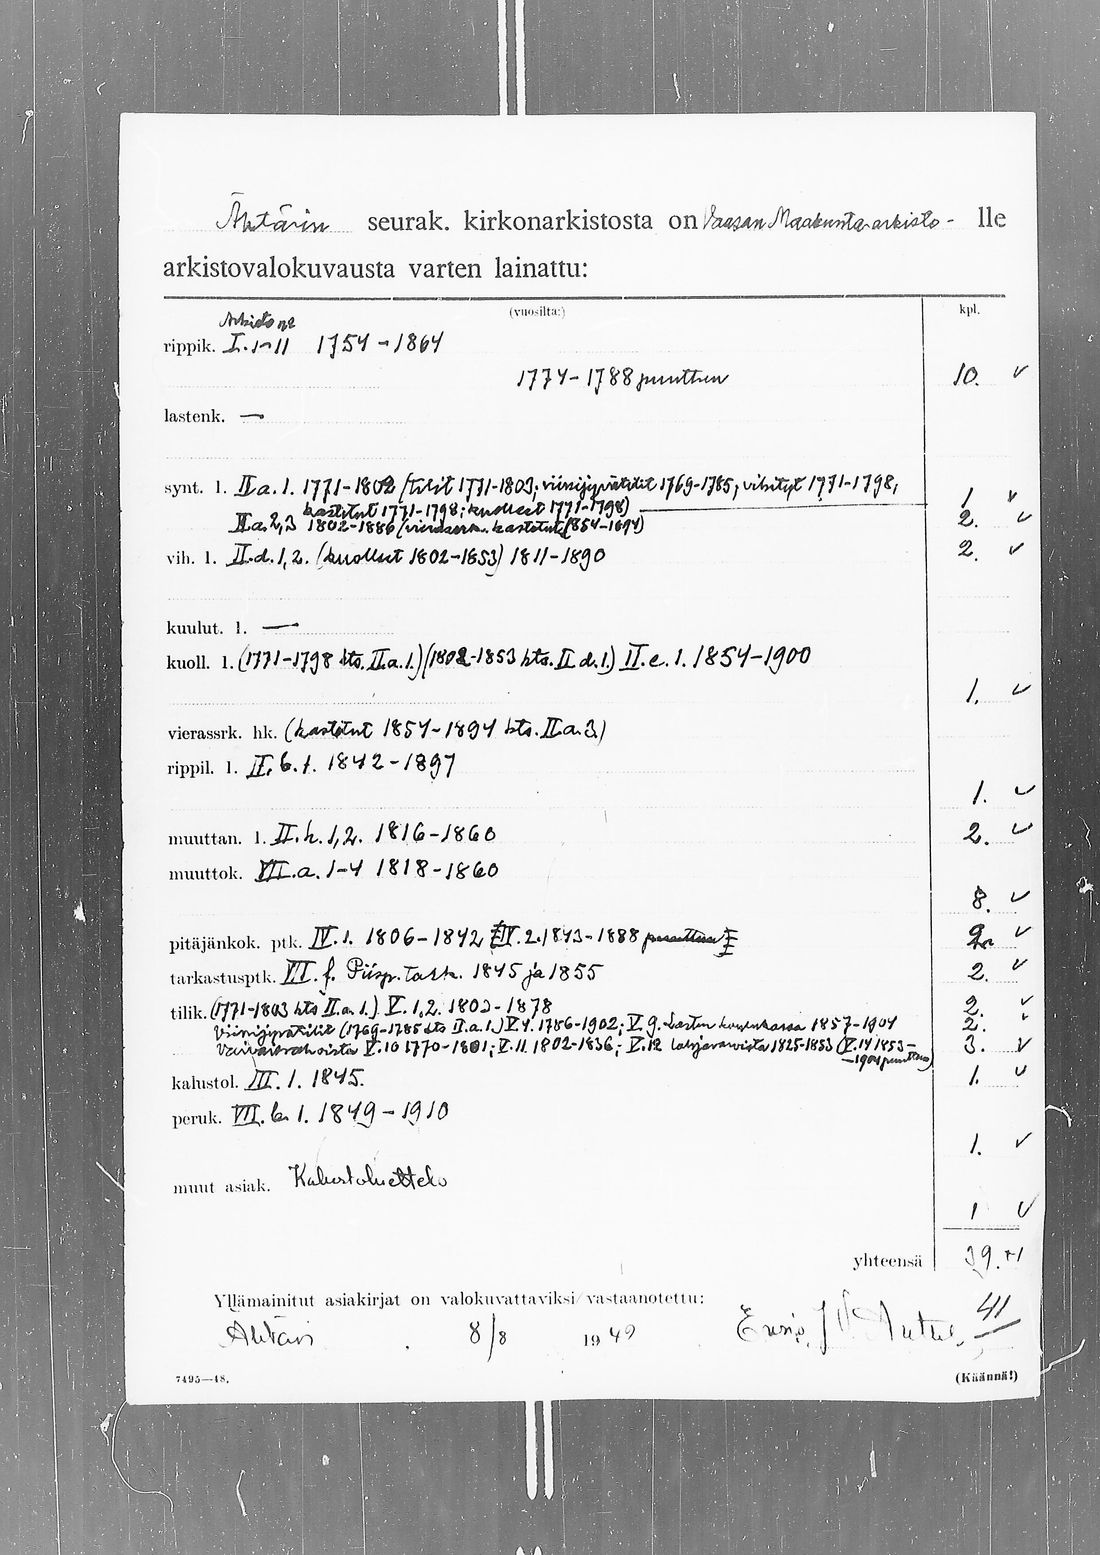 Ähtärin seurak. kirkonarkistosta on Vaasan Maakunta-arkisto - lle
arkistovalokuvausta varten lainattu:
(vuosilta:) kpl.
Arkisto n:o
rippik. I. 1-11 1754-1864
1774-1788 puuttuu 10. v
lastenk. —
synt. l. II a. 1. 1771-1802 (tilit 1771-1803; viinijyvätilit 1769-1785; vihityt 1771-1798,
kastetut 1771-1798; kuolleet 1771-1798) 1 v
II a. 2,3 1802-1886 (vierassrk. kastetut 1854-1894) 2. v
vih. l. II.d. 1,2. (kuolleet 1802-1853) 1811-1890 2. v
kuulut. l. —
kuoll. l. (1771-1798 kts. II.a.1.) (1802-1853 kts. II.d.1.) II.e.1. 1854-1900
1. v
vierassrk. hk. (kastetut 1854-1894 kts. II.a.3.)
rippil. l. II.b.1. 1842-1897
1. v
muuttan. l. II.h.1,2. 1816-1860 2. v
muuttok. VII.a. 1-4 1818-1860
8. v
pitäjänkok. ptk. IV.1. 1806-1842 IV.2. 1843-1888 puuttuu v
tarkastusptk. VII.f. Piisp. tark. 1845 ja 1855 2. v
tilik. (1771-1803 kts II.a.1.) V.1,2. 1802-1878 2. v
Viinijyvätilit (1769-1785 kts II.a.1.) V.4. 1786-1902; V.9. Lasten koulukassa 1857-1904 2. v
Vaivaisrahoista V.10 1770-1801; V.11. 1802-1836; V.12 lahjavaroista 1825-1853 (V.14 1853- 3. v
-1904 puuttuu)
kalustol. III.1. 1845. 1. v
peruk. VII.b.1. 1849-1910
1. v
muut asiak. Kalustoluettelo
1 v
yhteensä 39.+1
Yllämainitut asiakirjat on valokuvattaviksi vastaanotettu: 41
Ähtäri . 8/8 1949
7495—48. (Käännä!)